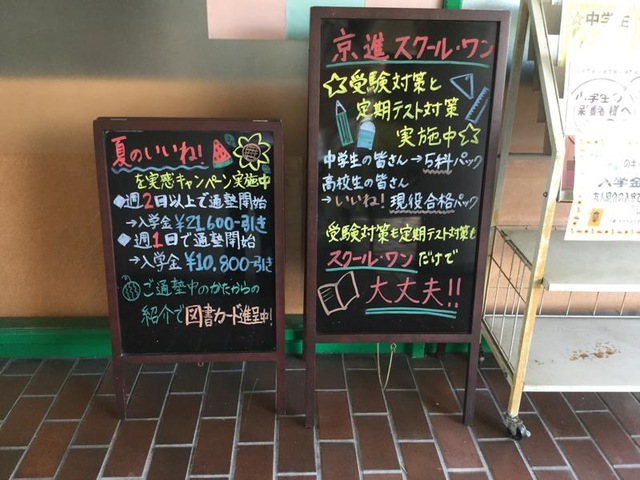 夏のいいね!
を実感キャンペーン実施中
◆週2日以上で通塾開始
→入学金¥21,600-引き
◆週1日で通塾開始
→入学金¥10,800-引き
ご通塾中のかたからの
紹介で図書カード進呈中!
京進スクール・ワン
☆受験対策と
定期テスト対策
実施中☆
中学生の皆さん→5科パック
高校生の皆さん
→いいね!現役合格パック
受験対策も定期テスト対策も
スクール・ワンだけで
大丈夫!!
☆中学生
小学生の
保護者様へ
入学金